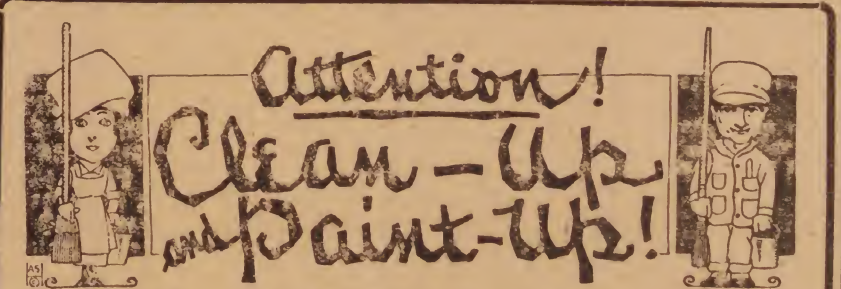 Attention!
Clean-Up
and Paint-Up!
AS
©